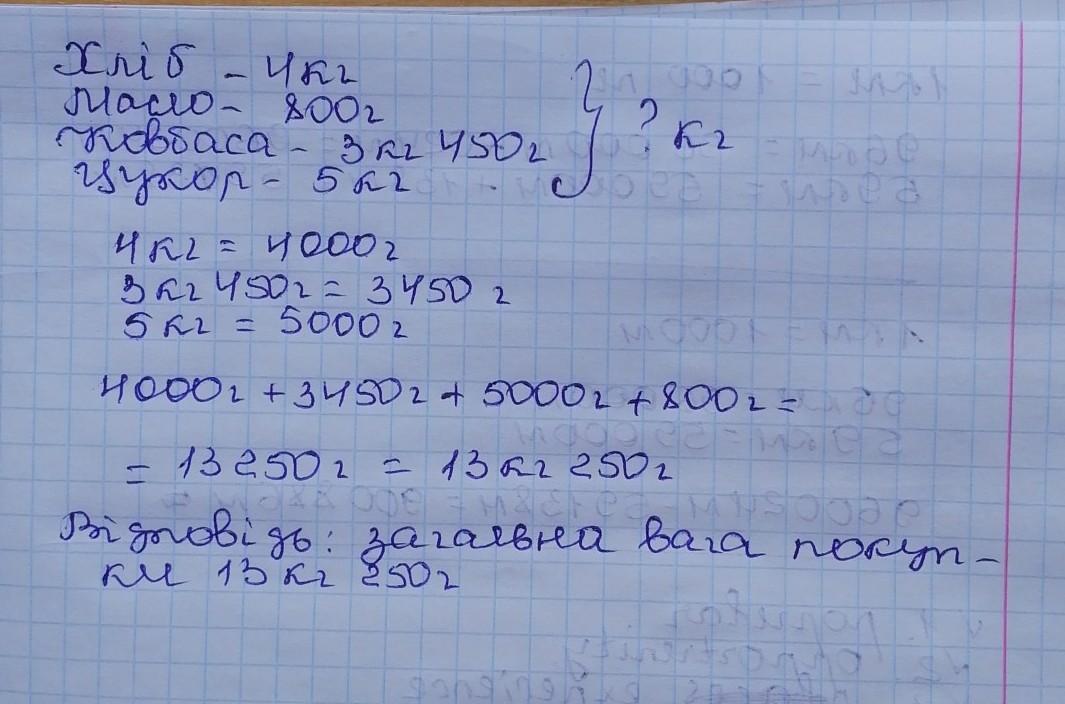 Хліб - 4кг
Масло - 800г
Ковбаса - 3кг 450г } ? кг
Цукор - 5кг
4кг = 4000г
3кг 450г = 3450г
5кг = 5000г
4000г + 3450г + 5000г + 800г =
= 13250г = 13кг 250г
Відповідь: загальна вага покуп-
ки 13кг 250г